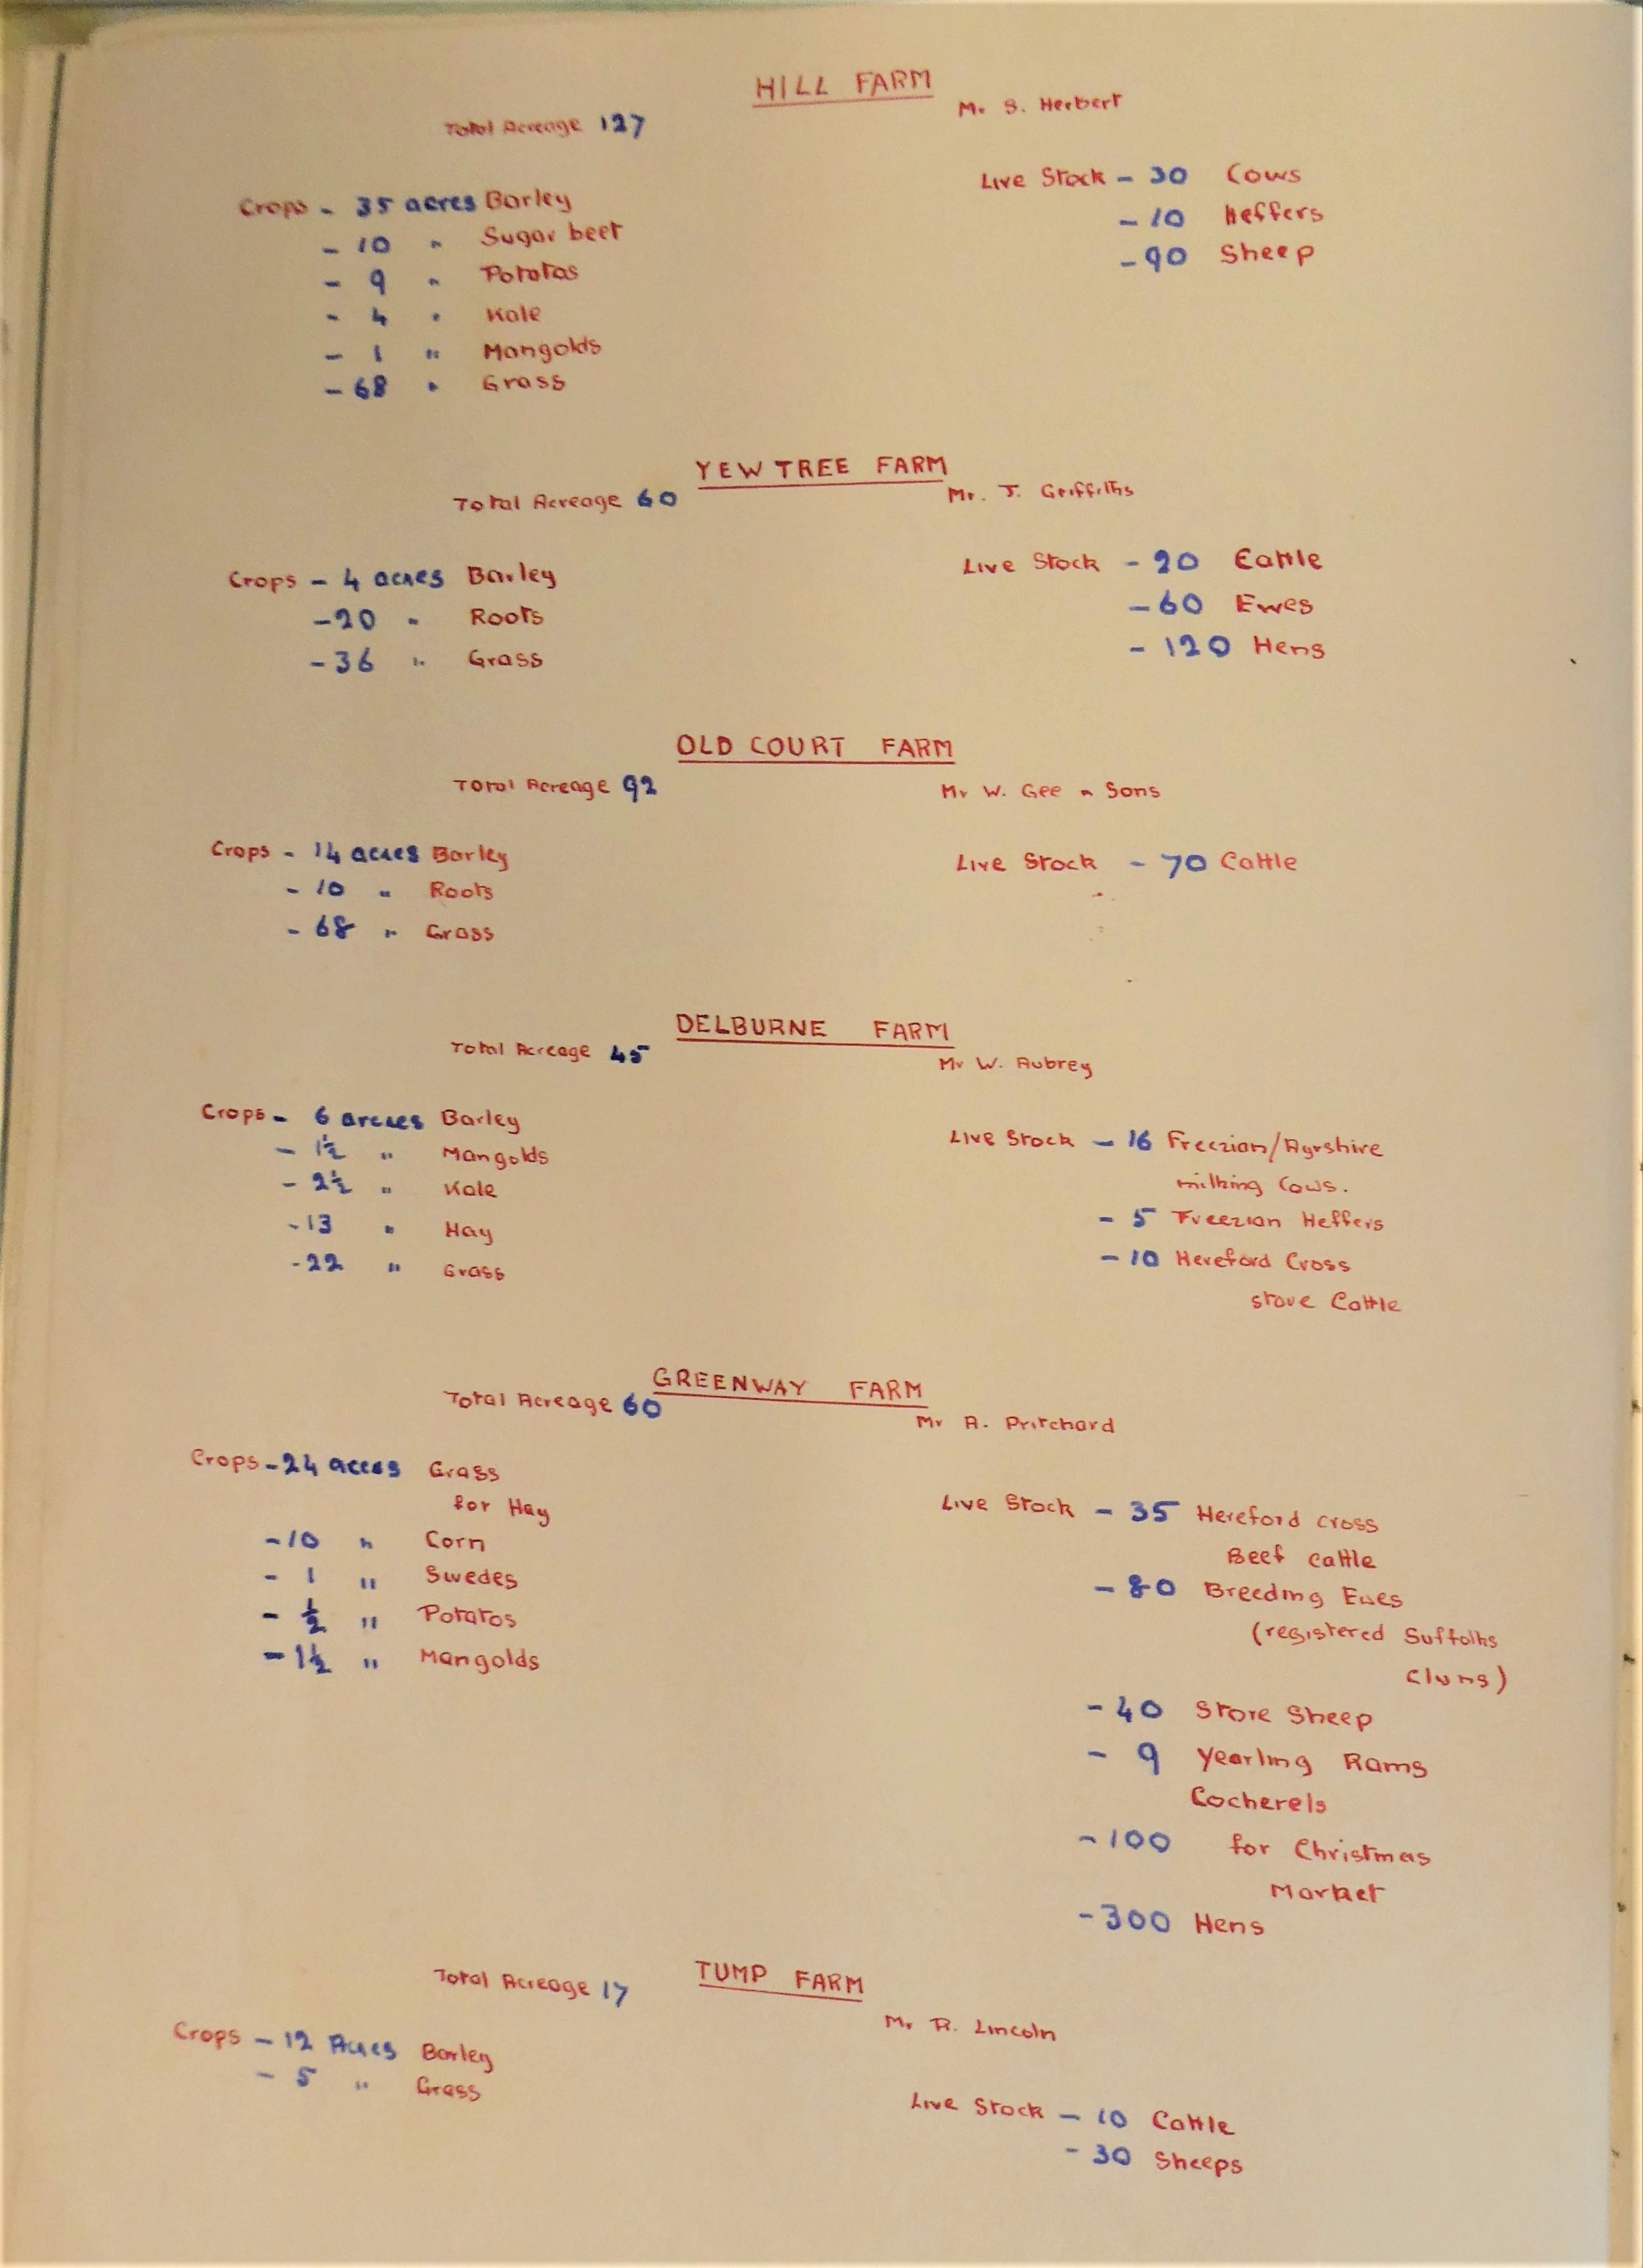 HILL FARM
Total Acreage 127
Mr. S. Herbert
Crops - 35 acres Barley
- 10 " Sugar beet
- 9 " Potatos
- 4 " Kale
- 1 " Mangolds
- 68 " Grass
Live Stock - 30 Cows
- 10 Heffers
- 90 Sheep
YEW TREE FARM
Total Acreage 60
Mr. J. Griffiths
Crops - 4 acres Barley
- 20 " Roots
- 36 " Grass
Live Stock - 20 Cattle
- 60 Ewes
- 120 Hens
OLD COURT FARM
Total Acreage 92
Mr W. Gee & Sons
Crops - 14 acres Barley
- 10 " Roots
- 68 " Grass
Live Stock - 70 Cattle
DELBURNE FARM
Total Acreage 45
Mr W. Aubrey
Crops - 6 arcres Barley
- 1½ " Mangolds
- 2½ " Kale
- 13 " Hay
- 22 " Grass
Live Stock - 16 Freezian/Ayrshire
milking Cows.
- 5 Freezian Heffers
- 10 Hereford Cross
store Cattle
GREENWAY FARM
Total Acreage 60
Mr A. Pritchard
Crops - 24 acres Grass
for Hay
- 10 " Corn
- 1 " Swedes
- ½ " Potatos
- 1½ " Mangolds
Live Stock - 35 Hereford cross
Beef cattle
- 80 Breeding Ewes
(registered Suffolks
Cluns)
- 40 Store Sheep
- 9 Yearling Rams
Cockerels
- 100 for Christmas
Market
- 300 Hens
TUMP FARM
Total Acreage 17
Mr R. Lincoln
Crops - 12 Acres Barley
- 5 " Grass
Live Stock - 10 Cattle
- 30 Sheeps